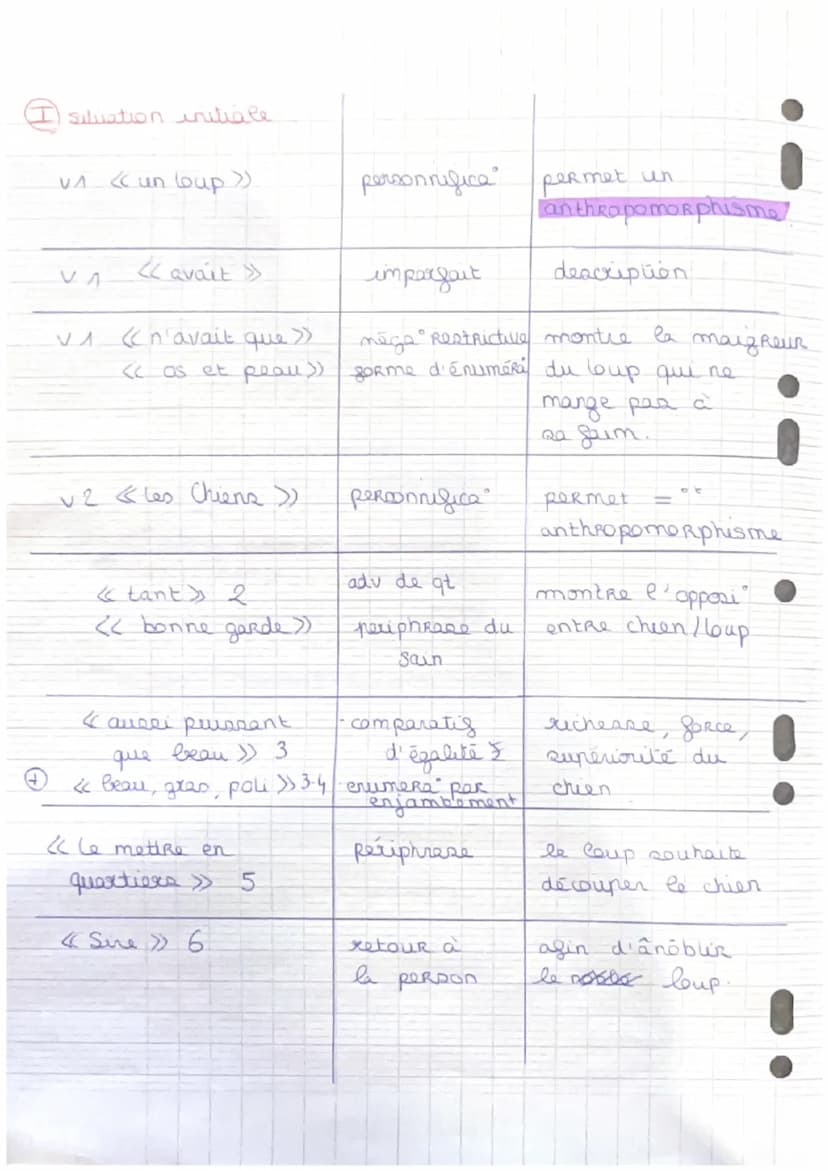 I situation initiale
v1 << un loup >> personnifica° permet un
anthropomorphisme
v1 << avait >> imparfait description
v1 << n'avait que >> néga° restrictive montre la maigreur
<< os et peau >> forme d'énuméra° du loup qui ne
mange pas à
sa faim.
v2 << Les Chiens >> personnifica° permet = °t
anthropomorphisme
<< tant >> 2 adv de qt montre l'opposi°
<< bonne garde >> périphrase du entre chien/loup
sain
<< aussi puissant - comparatif richesse, force,
que beau >> 3 d'égalité supériorité du
+ << beau, gras, poli >> 3-4 - enuméra° par chien
enjambement
<< Le mettre en périphrase le loup souhaite
quartiers >> 5 découper le chien
<< Sire >> 6 retour à afin d'ânôblir
la person le loup.